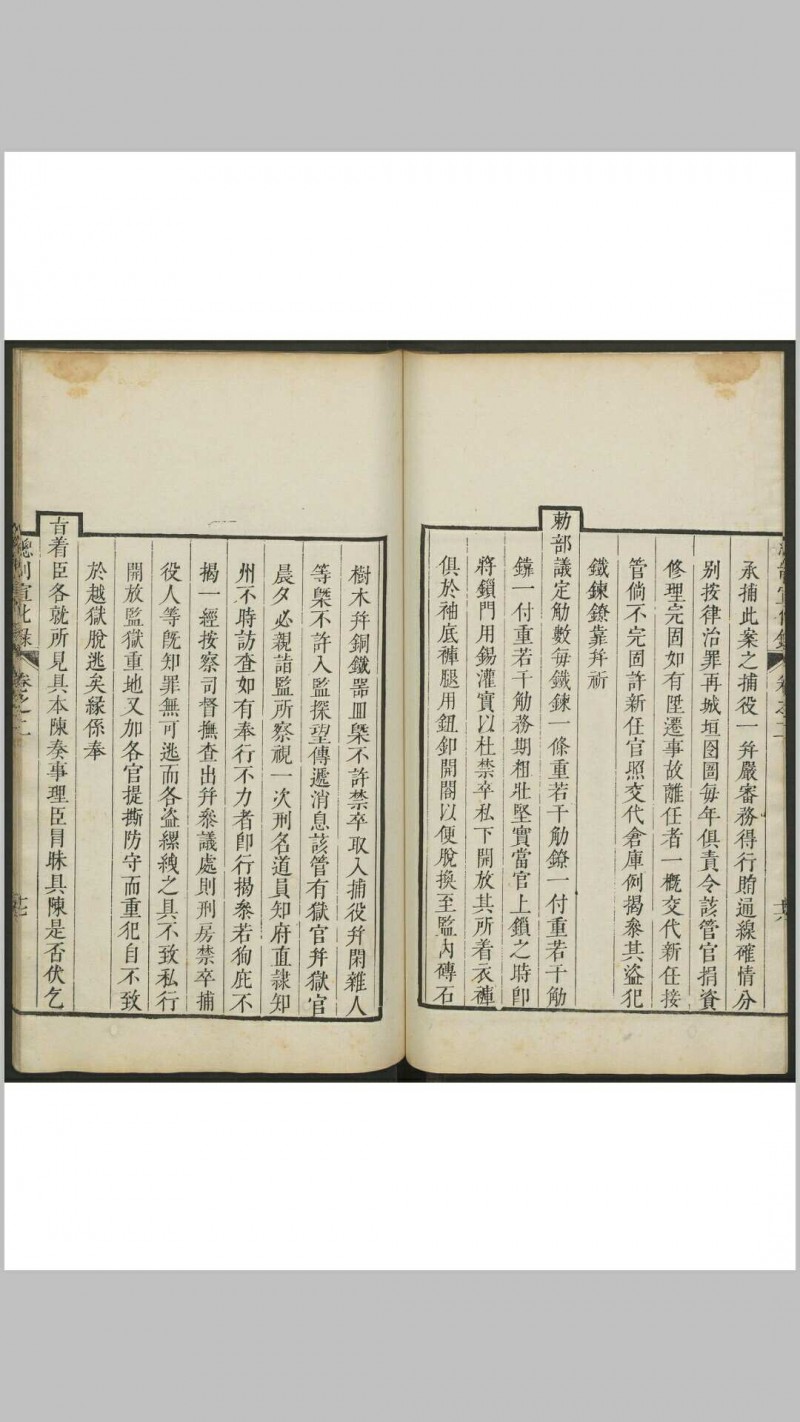 承捕此案之捕役一并嚴審務得行賄通線確情分
别按律治罪再城垣图圄每年俱責令該管官捐資
修理完固如有陞遷事故離任者一概交代新任接
管倘不完固許新任官照交代倉庫例揭叅其盗犯
鐵鍊鐐靠并祈
勅部議定觔數每鐵鍊一條重若干觔鐐一付重若干觔
鐽一付重若干觔務期粗壯堅實當官上鎖之時卽
將鎖門用錫灌實以杜禁卒私下開放其所着衣褲
俱於袖底褲腿用鈕釦開閤以便脫換至監內磚石
樹木并銅鐵器皿槩不許禁卒取入捕役并閑雜人
等槩不許入監探望傳遞消息該管有獄官并獄官
晨夕必親詣監所察視一次刑名道員知府直隷知
州不時訪查如有奉行不力者卽行揭叅若狥庇不
揭一經按察司督撫查出并叅議處則刑房禁卒捕
役人等旣知罪無可逃而各盗縲絏之具不致私行
開放監獄重地又加各官提撕防守而重犯自不致
於越獄脫逃矣緣係奉
旨着臣各就所見具本陳奏事理臣冒昧具陳是否伏乞
總制宣化錄
卷之二